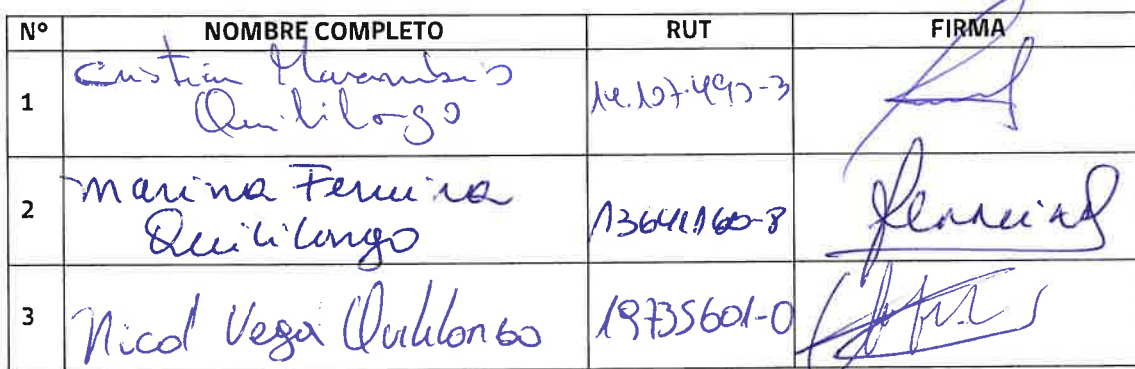 Nº NOMBRE COMPLETO RUT FIRMA
1 Cristian Marambio
Quililongo 14.107.490-3
2 Marina Ferreira
Quililongo 13641160-8
3 Nicol Vega Quililongo 19735601-0